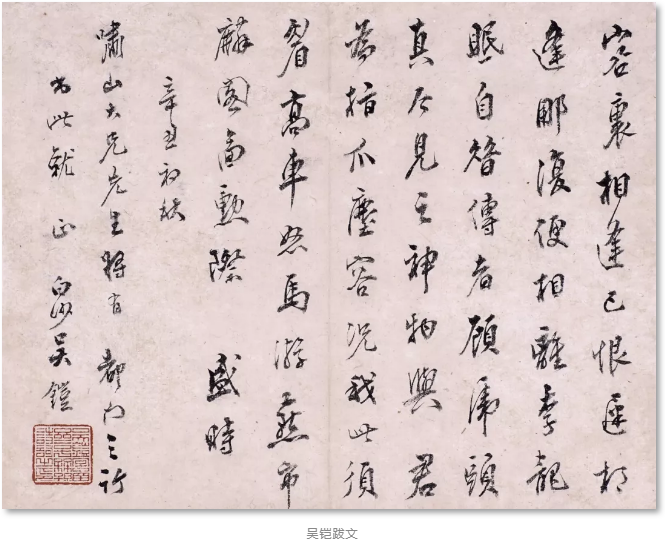 客裏相逢已恨遲相
逢那復便相離李龍
眠自傳者顧虎頭
真見之神物與君
為指爪塵容況我此須
眉高車怒馬游燕市
麟閣圖勳際 盛時
辛丑初秋
嘯山大兄先生將有 都門之行
書此就 正 白沙吳鎧
吴铠跋文